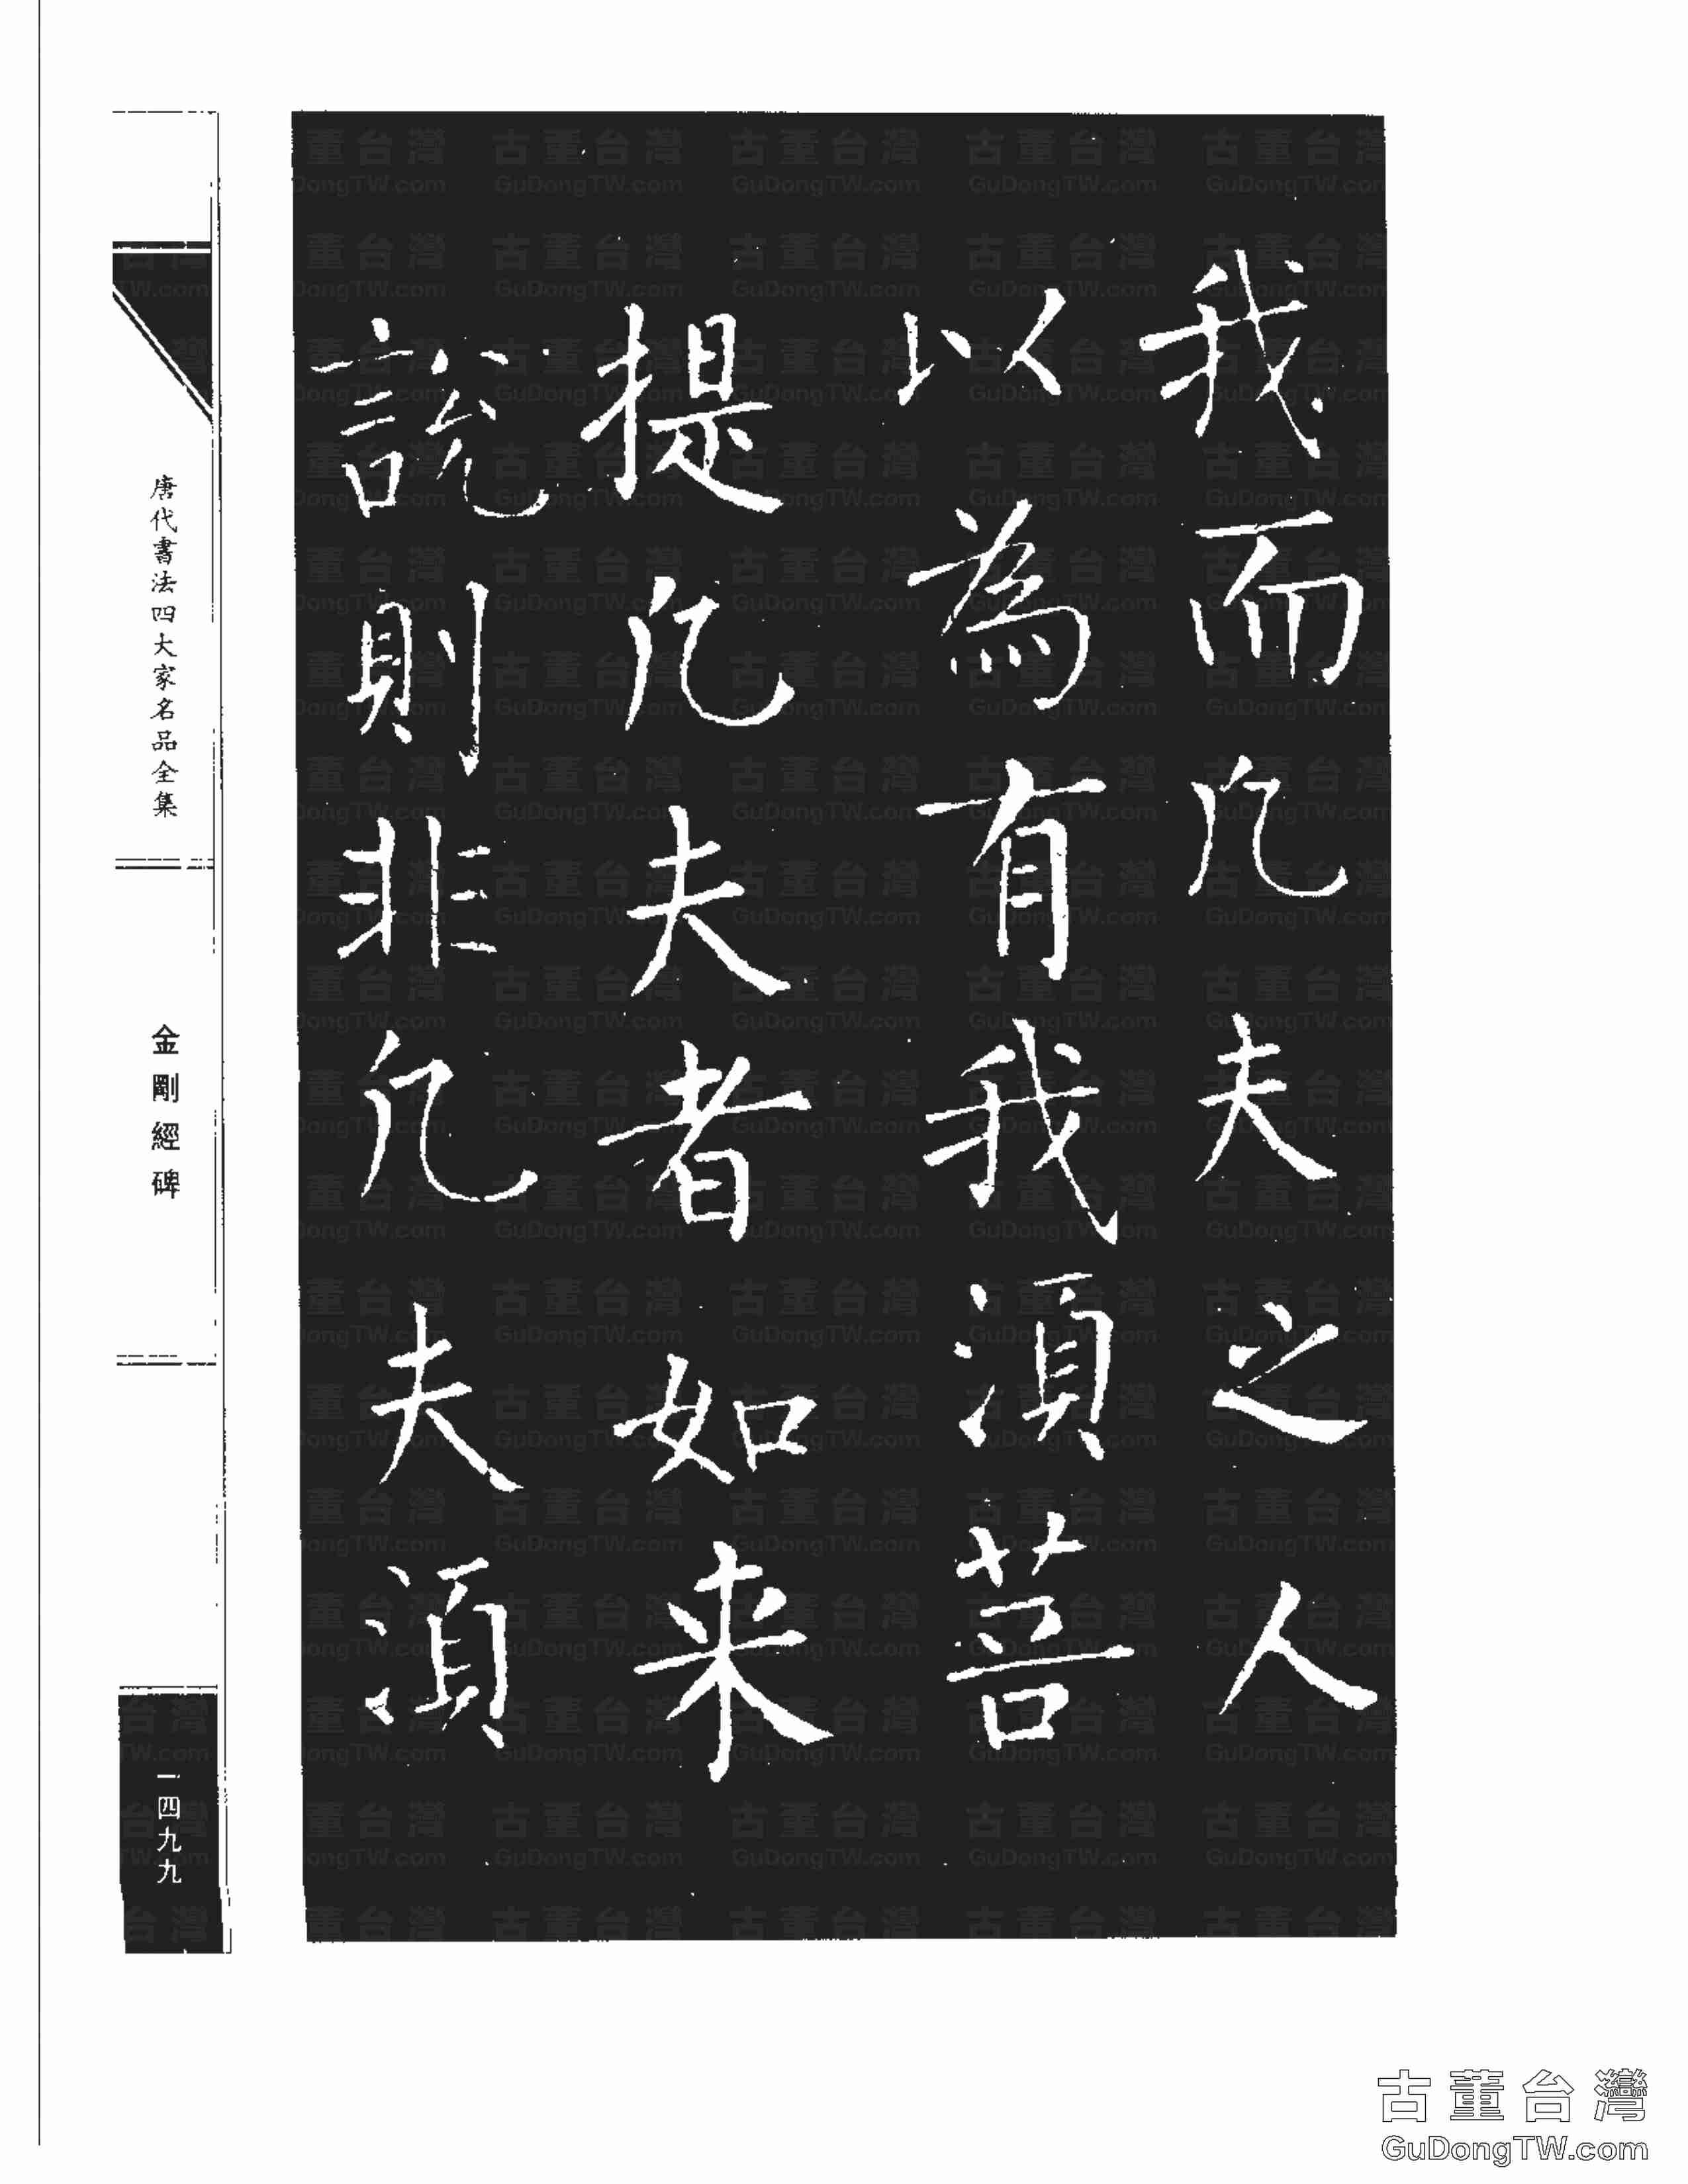 我而凡夫之人
以為有我須菩
提凡夫者如来
說則非凡夫須
唐代書法四大家名品全集
金剛經碑
一四九九
古董台灣
GuDongTW.com